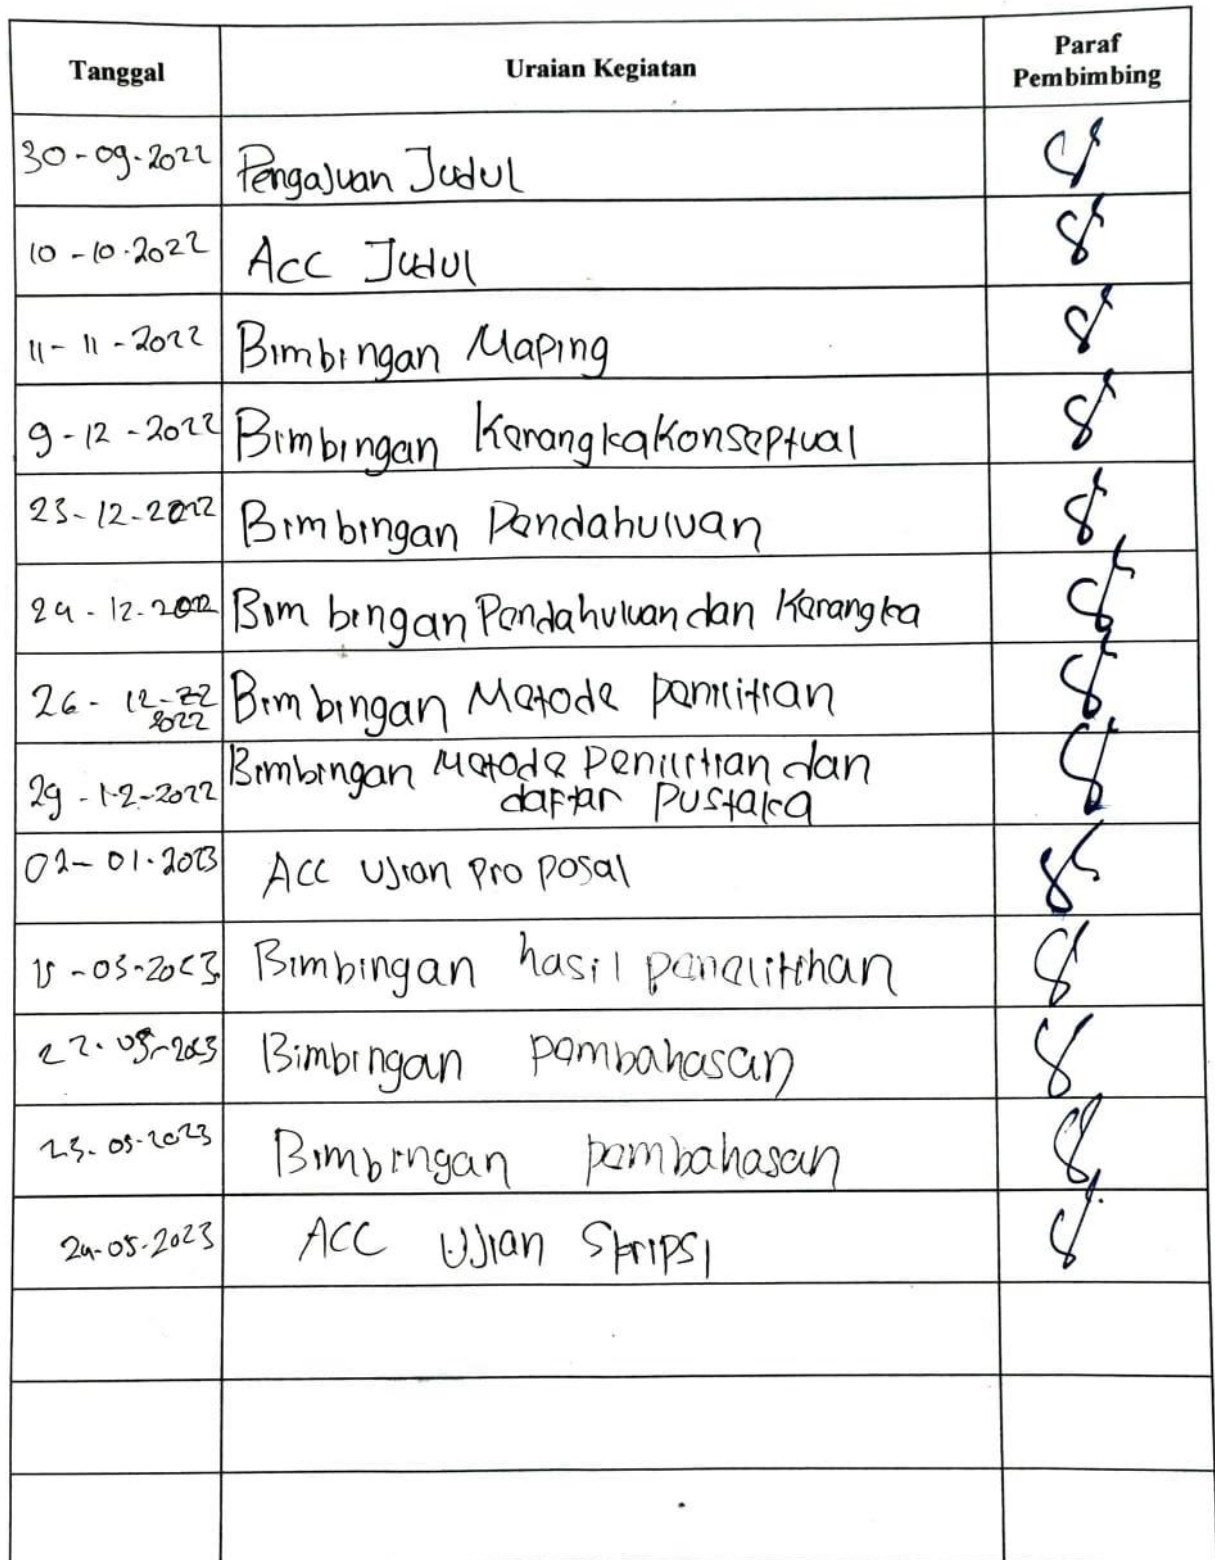 Tanggal Uraian Kegiatan Paraf
Pembimbing
30-09-2022 Pengajuan Judul
10-10-2022 Acc Judul
11-11-2022 Bimbingan Maping
9-12-2022 Bimbingan Kerangka Konseptual
23-12-2022 Bimbingan Pendahuluan
24-12-2022 Bimbingan Pendahuluan dan Kerangka
26-12-22 Bimbingan Metode penilitian
2022
Bimbingan Metode Penilitian dan
29-12-2022 daftar Pustaka
02-01-2023 ACC Ujian proposal
-2023 Bimbingan hasil penelitihan
22-05-2023 Bimbingan pembahasan
23-05-2023 Bimbingan pembahasan
24-05-2023 ACC Ujian Skripsi